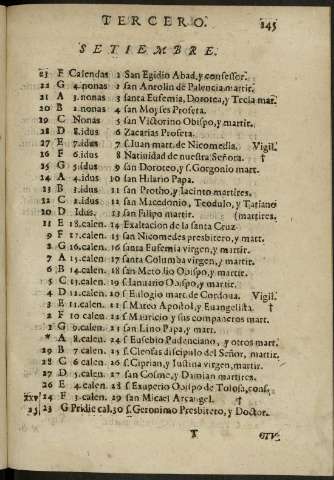 TERCERO. 245
SETIEMBRE.
23 F Calendas 1 San Egidio Abad, y confessor.
22 G 4. nonas 2 san Antolin de Palencia. martir.
21 A 3. nonas 3 santa Eufemia, Dorotea, y Tecla mar.
20 B 2. nonas 4 san Moyses Profeta.
19 C Nonas 5 san Victorino Obispo, y martir.
28 D 8. idus 6 Zacarias Profeta.
27 E 7. idus 7 s. Iuan mart. de Nicomedia. Vigil.
16 F 6. idus 8 Natiuidad de nuestra Señora. †
25 G 5. idus 9 san Doroteo, y s. Gorgonio mart.
24 A 4. idus 10 san Hilario Papa.
23 B 3. idus 11 san Protho, y Iacinto martires.
22 C 2. idus 12 san Macedonio, Teodulo, y Tatiano
20 D Idus. 13 san Filipo martir. (martires.
11 E 18. calen. 14 Exaltacion de la santa Cruz
9 F 17. calen. 15 san Nicomedes presbitero, y mart.
2 G 16. calen. 16 santa Eufemia virgen, y martir.
7 A 15. calen. 17 santa Columba virgen, y martir.
6 B 14. calen. 18 san Metodio Obispo, y martir.
5 C 13. calen. 19 s. Ianuario Obispo, y martir.
4 D 12. calen. 20 s. Eulogio mart. de Cordoua. Vigil.
3 E 11. calen. 21 s. Mateo Apostol, y Euangelista. †
2 F 10 calen. 22 s Mauricio y sus compañeros mart.
1 G 9. calen. 23 san Lino Papa, y mart.
* A 8. calen. 24 s Eusebio Pudenciano, y otros mart.
29 B 7. calen. 25 s. Cleofas discipulo del Señor, martir.
28 C 6 calen. 26 s. Ciprian, y Iustina virgen, martir.
27 D 5. calen. 27 san Cosme, y Damian martires.
26 E 4. calen. 28 s Exuperio Obispo de Tolosa, conf.
xxv 24 F 3. calen. 29 san Micael Arcangel. †
25, 23 G Pridie cal. 30 s. Geronimo Presbitero, y Doctor.
T